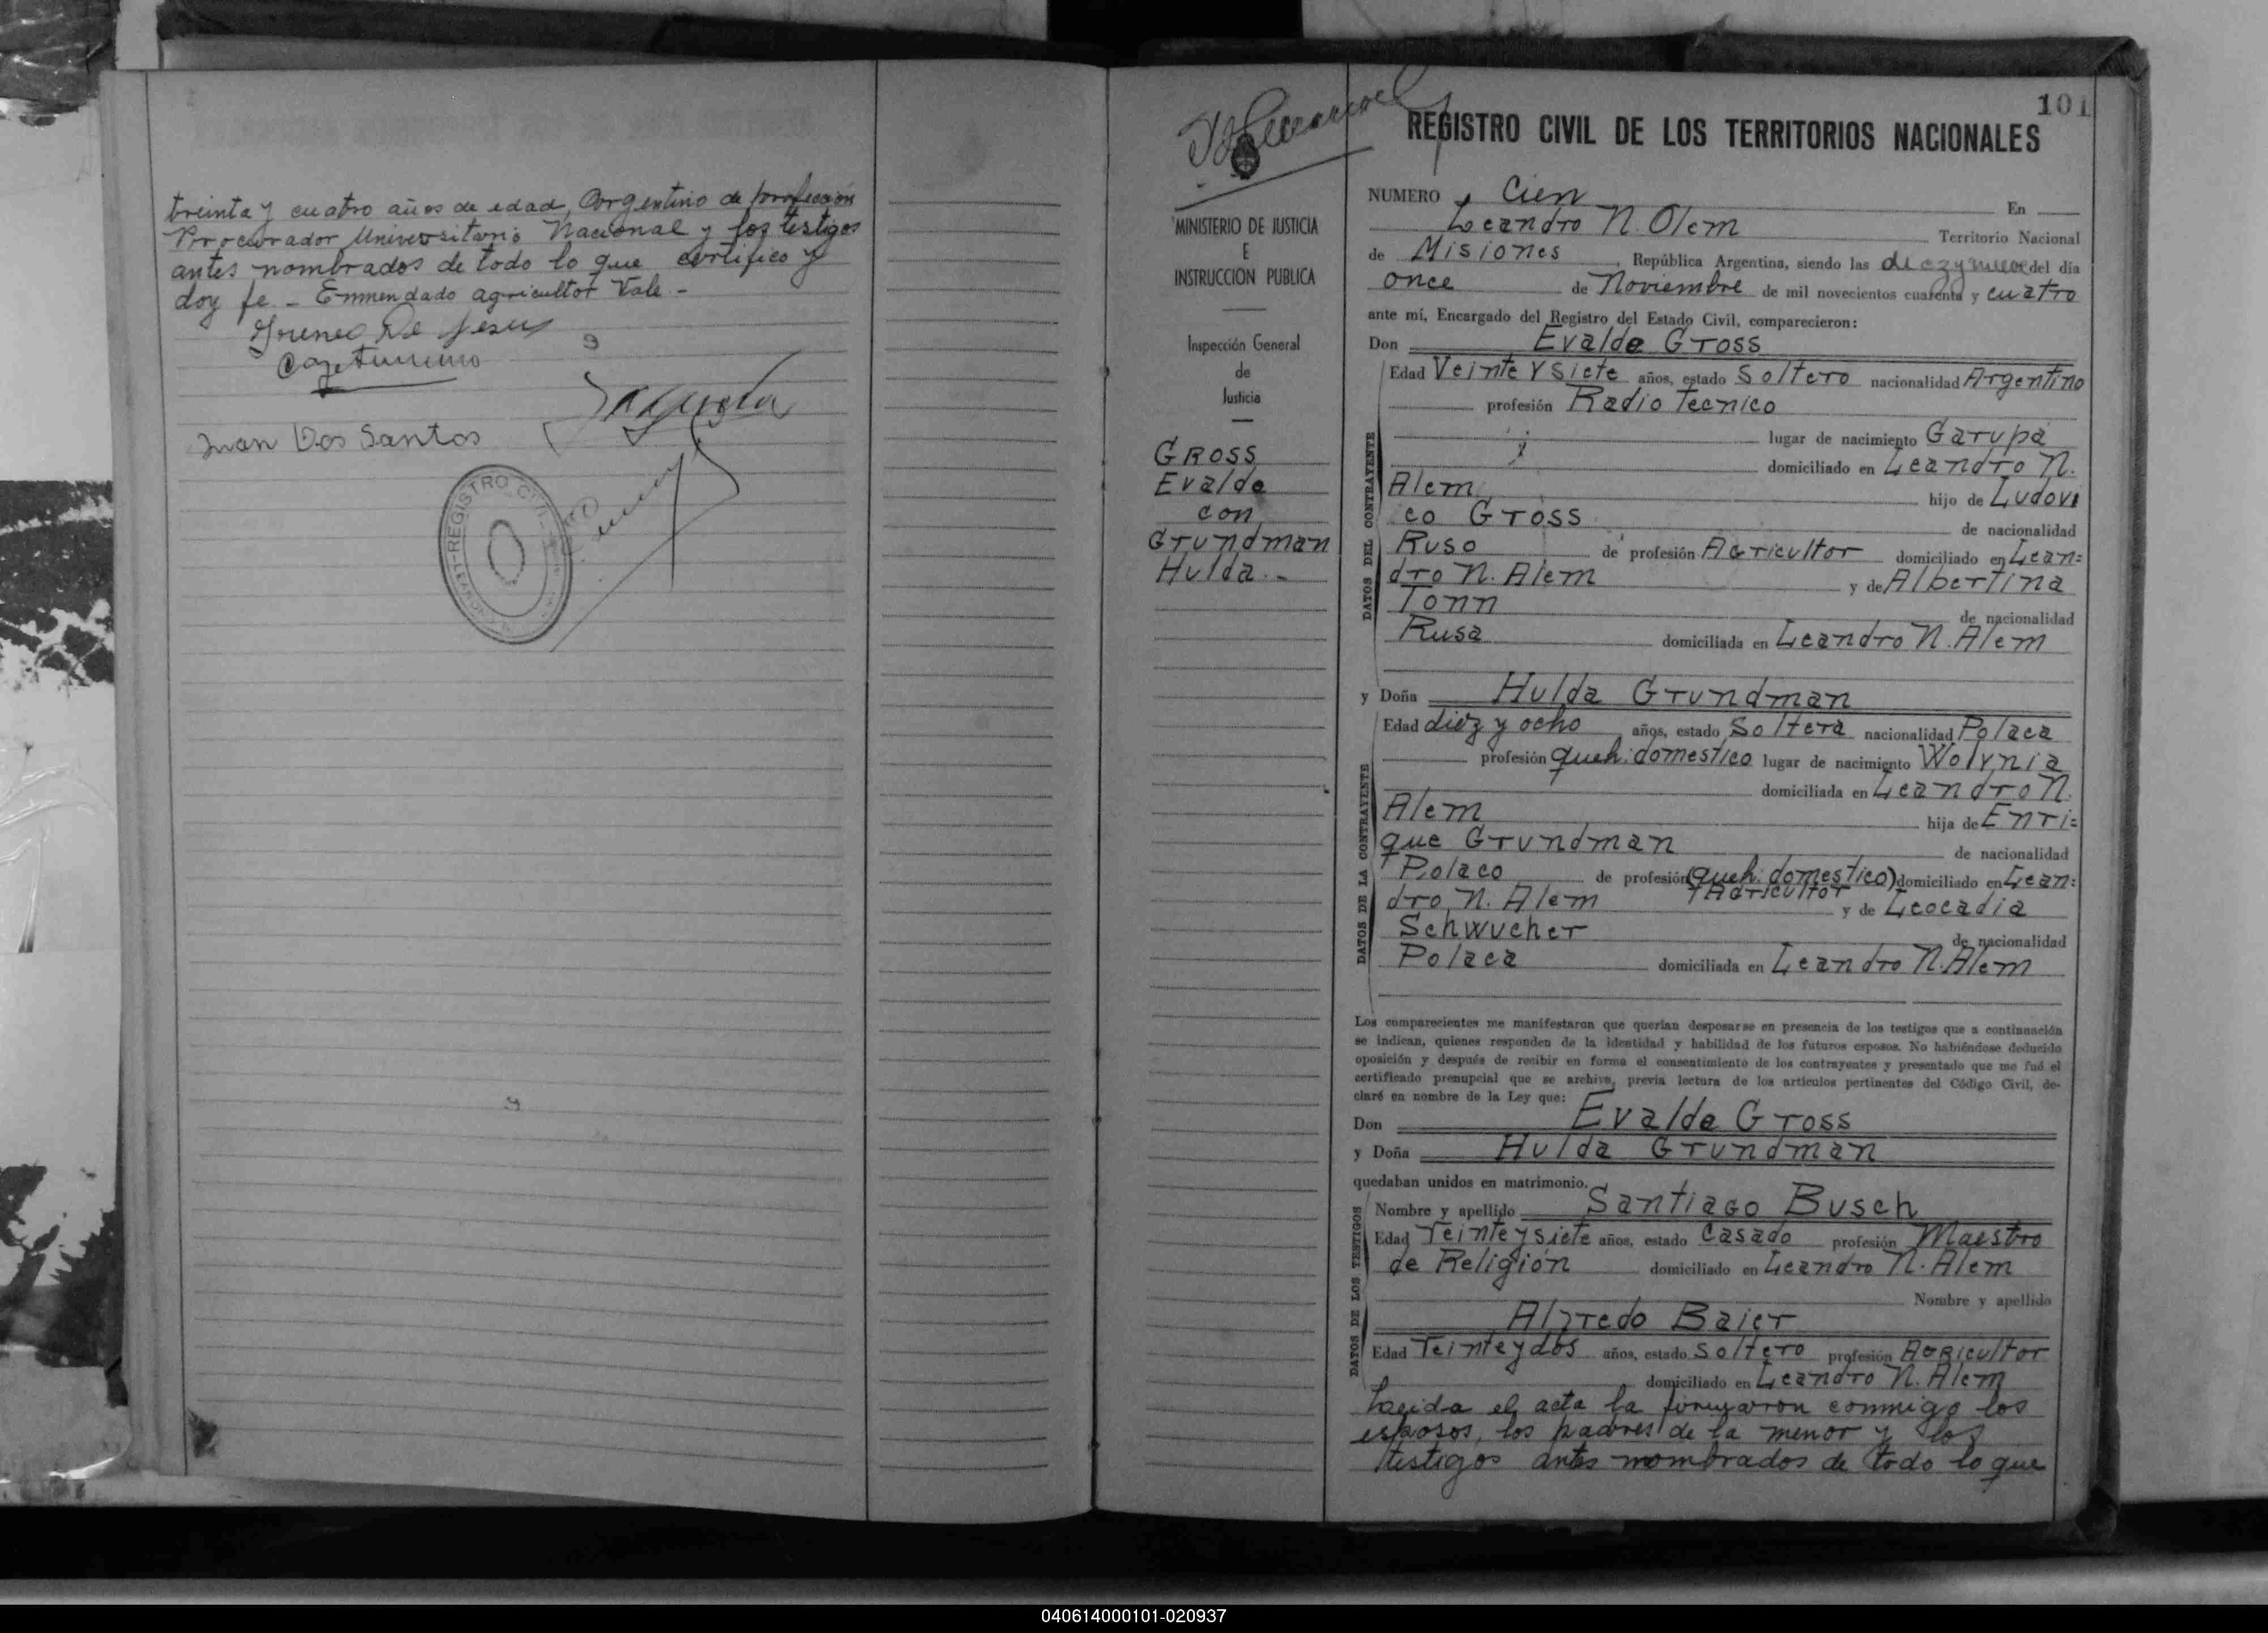 treinta y cuatro años de edad, Argentino de profección
Procurador Universitario Nacional y los testigos
antes nombrados de todo lo que certifico y
doy fe - Enmendado agricultor Vale. -
Juan Dos Santos
REGISTRO CIVIL
101
REGISTRO CIVIL DE LOS TERRITORIOS NACIONALES
MINISTERIO DE JUSTICIA
E
INSTRUCCION PUBLICA
Inspección General
de
Justicia
GROSS
Evalde
con
Grundman
Hulda. -
NUMERO Cien En
Leandro N. Olem Territorio Nacional
de Misiones, República Argentina, siendo las diezynueve del día
once de Noviembre de mil novecientos cuarenta y cuatro
ante mí, Encargado del Registro del Estado Civil, comparecieron:
Don Evalde Gross
Edad Veinte y siete años, estado Soltero nacionalidad Argentino
profesión Radio Tecnico
lugar de nacimiento Garupá
domiciliado en Leandro N.
Alem hijo de Ludovi
co Gross de nacionalidad
Ruso de profesión Agricultor domiciliado en Lean=
dro N. Alem y de Albertina
Tonn de nacionalidad
Rusa domiciliada en Leandro N. Alem
DATOS DEL CONTRAYENTE
y Doña Hulda Grundman
Edad diez y ocho años, estado Soltera nacionalidad Polaca
profesión queh. domestico lugar de nacimiento Wolynia
domiciliada en Leandro N.
Alem hija de Enri=
que Grundman de nacionalidad
Polaco de profesión (queh. domestico) domiciliado en Lean=
Agricultor
dro N. Alem y de Leocadia
Schwucher de nacionalidad
Polaca domiciliada en Leandro N. Alem
DATOS DE LA CONTRAYENTE
Los comparecientes me manifestaron que querían desposarse en presencia de los testigos que a continuación
se indican, quienes responden de la identidad y habilidad de los futuros esposos. No habiéndose deducido
oposición y después de recibir en forma el consentimiento de los contrayentes y presentado que me fué el
certificado prenupcial que se archiva, previa lectura de los artículos pertinentes del Código Civil, de-
claré en nombre de la Ley que:
Don Evalde Gross
y Doña Hulda Grundman
quedaban unidos en matrimonio.
Nombre y apellido Santiago Busch
Edad Veinte y siete años, estado Casado profesión Maestro
de Religión domiciliado en Leandro N. Alem
Nombre y apellido
Alfredo Baier
Edad Veinte y dós años, estado Soltero profesión Agricultor
domiciliado en Leandro N. Alem
DATOS DE LOS TESTIGOS
Leeida el acta la firmaron conmigo los
esposos, los padres de la menor y los
testigos antes nombrados de todo lo que
040614000101-020937